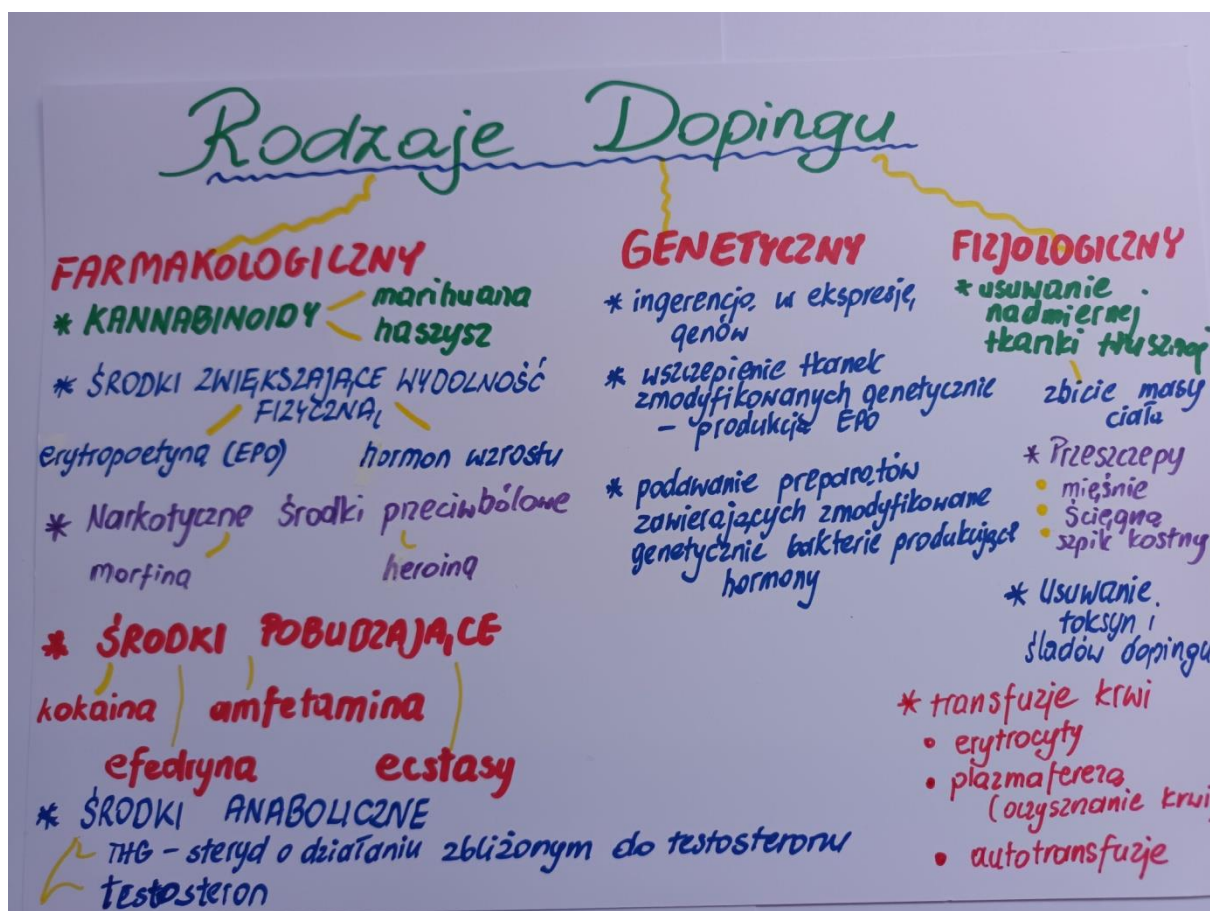 Rodzaje Dopingu
FARMAKOLOGICZNY
* KANNABINOIDY
marihuana
haszysz
* ŚRODKI ZWIĘKSZAJĄCE WYDOLNOŚĆ
FIZYCZNĄ
erytropoetyna (EPO)
hormon wzrostu
* Narkotyczne środki przeciwbólowe
morfina
heroina
* ŚRODKI POBUDZAJĄCE
kokaina
amfetamina
efedryna
ecstasy
* ŚRODKI ANABOLICZNE
THG – steryd o działaniu zbliżonym do testosteronu
testosteron
GENETYCZNY
* ingerencja w ekspresję
genów
* wszczepienie tkanek
zmodyfikowanych genetycznie
– produkcja EPO
* podawanie preparatów
zawierających zmodyfikowane
genetycznie bakterie produkujące
hormony
FIZJOLOGICZNY
* usuwanie
nadmiernej
tkanki
zbicie masy
ciała
* Przeszczepy
• mięśnie
• ścięgna
• szpik kostny
* Usuwanie
toksyn i
śladów dopingu
* transfuzje krwi
• erytrocyty
• plazmafereza
(oczysznanie krwi
• autotransfuzje